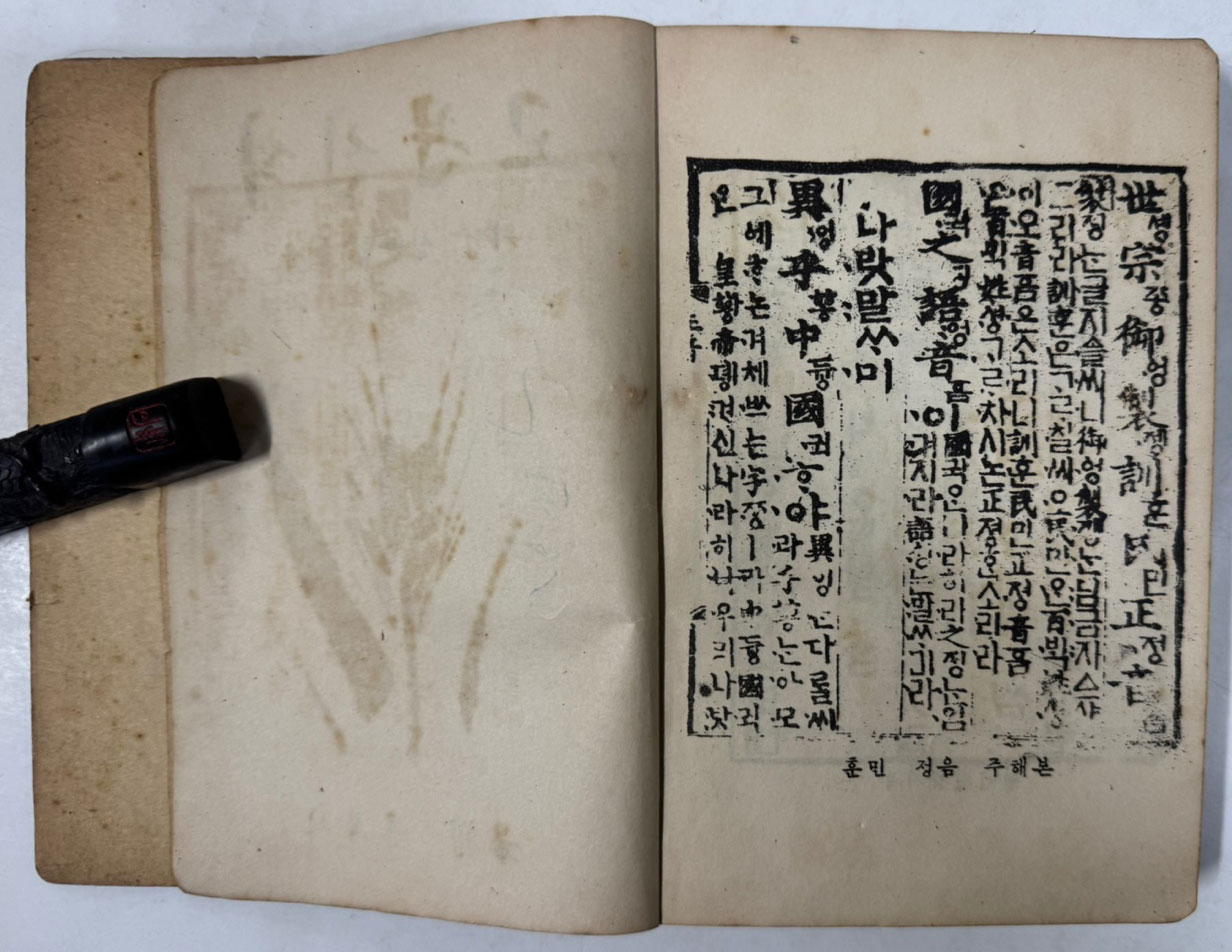 世솅宗종御엉製졩訓훈民민正정音
製졩는글지슬씨니御엉製졩는님금지스샨
그리라訓훈은ᄀᆞᄅᆞ칠씨오民민은百ᄇᆡᆨ姓셩
이오音흠은소리니訓훈民민正정音흠
은百ᄇᆡᆨ姓셩ᄀᆞᄅᆞ치시논正정ᄒᆞᆫ소리라
國귁之징語엉音흠이
國귁은나라히라之징는입
겨지라語엉는말ᄊᆞ미라
나랏말ᄊᆞ미
異잉乎ᅘᅩᆼ中듕國귁ᄒᆞ야
異잉는다ᄅᆞᆯ씨
라乎ᅘᅩᆼ는아모
그에ᄒᆞ논겨체ᄡᅳ는字ᄍᆞᆼㅣ라中듕國귁
은皇황帝뎽겨신나라히니우리나랏
훈민 정음 주해본